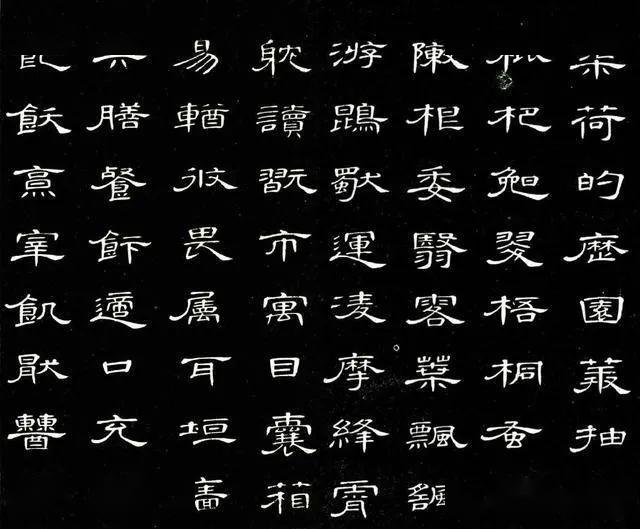 荷的歷園莽抽
杷晚翠梧桐蚤
陳根委翳落葉飄颻
游鵾獨運凌摩絳霄
耽讀翫市寓目囊箱
易輶攸畏屬耳垣牆
膳餐飰適口充
飫烹宰飢厭糟